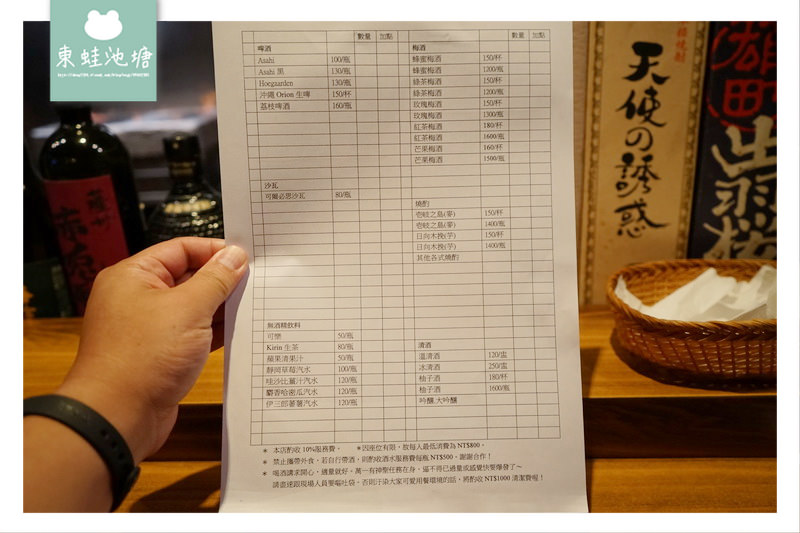 東蛙池塘
數量 加點
啤酒
Asahi 100/瓶
Asahi 黑 130/瓶
Hoegaarden 130/瓶
沖繩 Orion 生啤 150/杯
荔枝啤酒 160/瓶
沙瓦
可爾必思沙瓦 80/瓶
無酒精飲料
可樂 50/瓶
Kirin 生茶 80/瓶
蘋果清果汁 50/瓶
靜岡草莓汽水 100/瓶
哇沙比薑汁汽水 120/瓶
麝香哈密瓜汽水 120/瓶
伊三郎蕃薯汽水 120/瓶
數量 加點
梅酒
蜂蜜梅酒 150/杯
蜂蜜梅酒 1200/瓶
綠茶梅酒 150/杯
綠茶梅酒 1200/瓶
玫瑰梅酒 150/杯
玫瑰梅酒 1300/瓶
紅茶梅酒 180/杯
紅茶梅酒 1600/瓶
芒果梅酒 160/杯
芒果梅酒 1500/瓶
燒酌
壱岐之島(麥) 150/杯
壱岐之島(麥) 1400/瓶
日向木挽(芋) 150/杯
日向木挽(芋) 1400/瓶
其他各式燒酌
清酒
溫清酒 120/盅
冰清酒 250/盅
柚子酒 180/杯
柚子酒 1600/瓶
吟釀.大吟釀
* 本店酌收 10%服務費。 *因座位有限，故每人最低消費為 NT$800。
* 禁止攜帶外食，若自行帶酒，則酌收酒水服務費每瓶 NT$500。謝謝合作！
* 喝酒請求開心，適量就好。萬一有神聖任務在身、逼不得已過量或感覺快要爆發了～
請盡速跟現場人員要嘔吐袋。否則汙染大家可愛用餐環境的話，將酌收 NT$1000 清潔費喔！
天使の誘惑